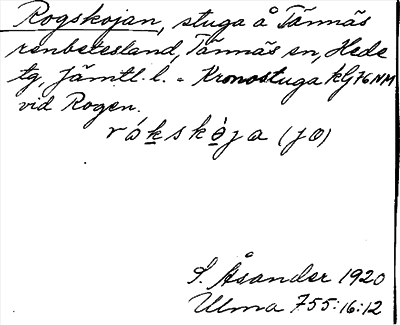 Rogskojan, stuga å Tännäs
renbetesland, Tännäs sn, Hede
tg, Jämtl. l. = Kronostuga kG76NM
vid Rogen.
rókskòja (jo)
S. Åsander 1920
Ulma 755:16:12